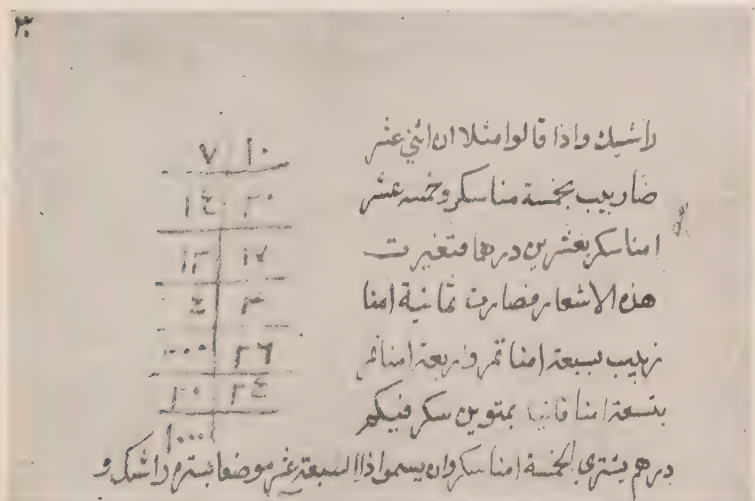 ٣٠
راشيك واذا قالوا مثلا ان اثني عشر
زبيب بخمسة منا سكر وخمسه عشر
امنا سكر بعشرين درهما فتغيرت
هذه الاسعار فصارت ثمانية امنا
زبيب بسبعة امنا تمر واربعة امنا تمر
بتسعة امنا فانيد بمنوين سكر فبكم
درهم يشترى الخمسة امنا سكر وان يسموا السبعة عشر موضعا راشيك و
١٠ ٧
٢٠ ١٤
١٧ ١٣
٣ ٤
٢٦
٣٤ ٢٠